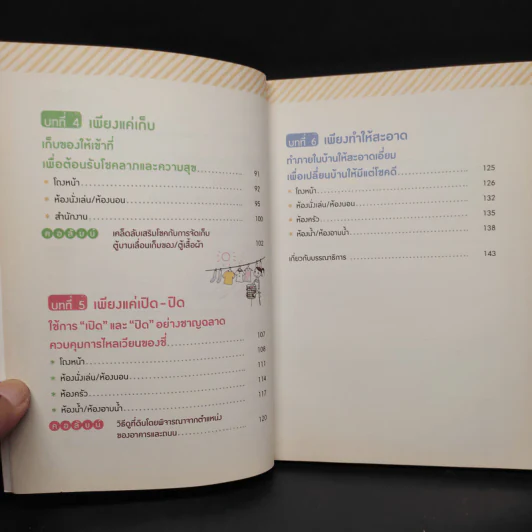 บทที่ 4 เพียงแค่เก็บ
เก็บของให้เข้าที่
เพื่อต้อนรับโชคลาภและความสุข 91
โถงหน้า 92
ห้องนั่งเล่น/ห้องนอน 95
สำนักงาน 100
คอลัมน์ เคล็ดลับเสริมโชคกับการจัดเก็บ
ตู้บานเลื่อนเก็บของ/ตู้เสื้อผ้า 102
บทที่ 5 เพียงแค่เปิด-ปิด
ใช้การ "เปิด" และ "ปิด" อย่างชาญฉลาด
ควบคุมการไหลเวียนของชี่ 107
โถงหน้า 108
ห้องนั่งเล่น/ห้องนอน 111
ห้องครัว 114
ห้องน้ำ/ห้องอาบน้ำ 117
คอลัมน์ วิธีดูที่ดินโดยพิจารณาจากตำแหน่ง
ของอาคารและถนน 120
บทที่ 6 เพียงทำให้สะอาด
ทำภายในบ้านให้สะอาดเอี่ยม
เพื่อเปลี่ยนบ้านให้มีแต่โชคดี 125
โถงหน้า 126
ห้องนั่งเล่น/ห้องนอน 132
ห้องครัว 135
ห้องน้ำ/ห้องอาบน้ำ 138
เกี่ยวกับบรรณาธิการ 143